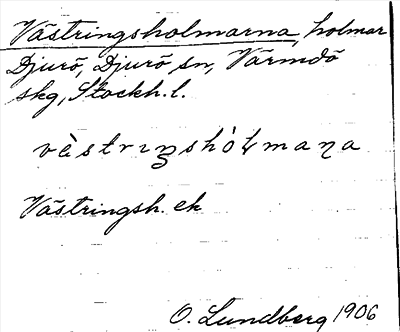 Västringsholmarna, holmar
Djurö, Djurö sn, Värmdö
skg, Stockh. l.
vàstrıŋshòɫmaṇa
Västringsh. ek
O. Lundberg 1906